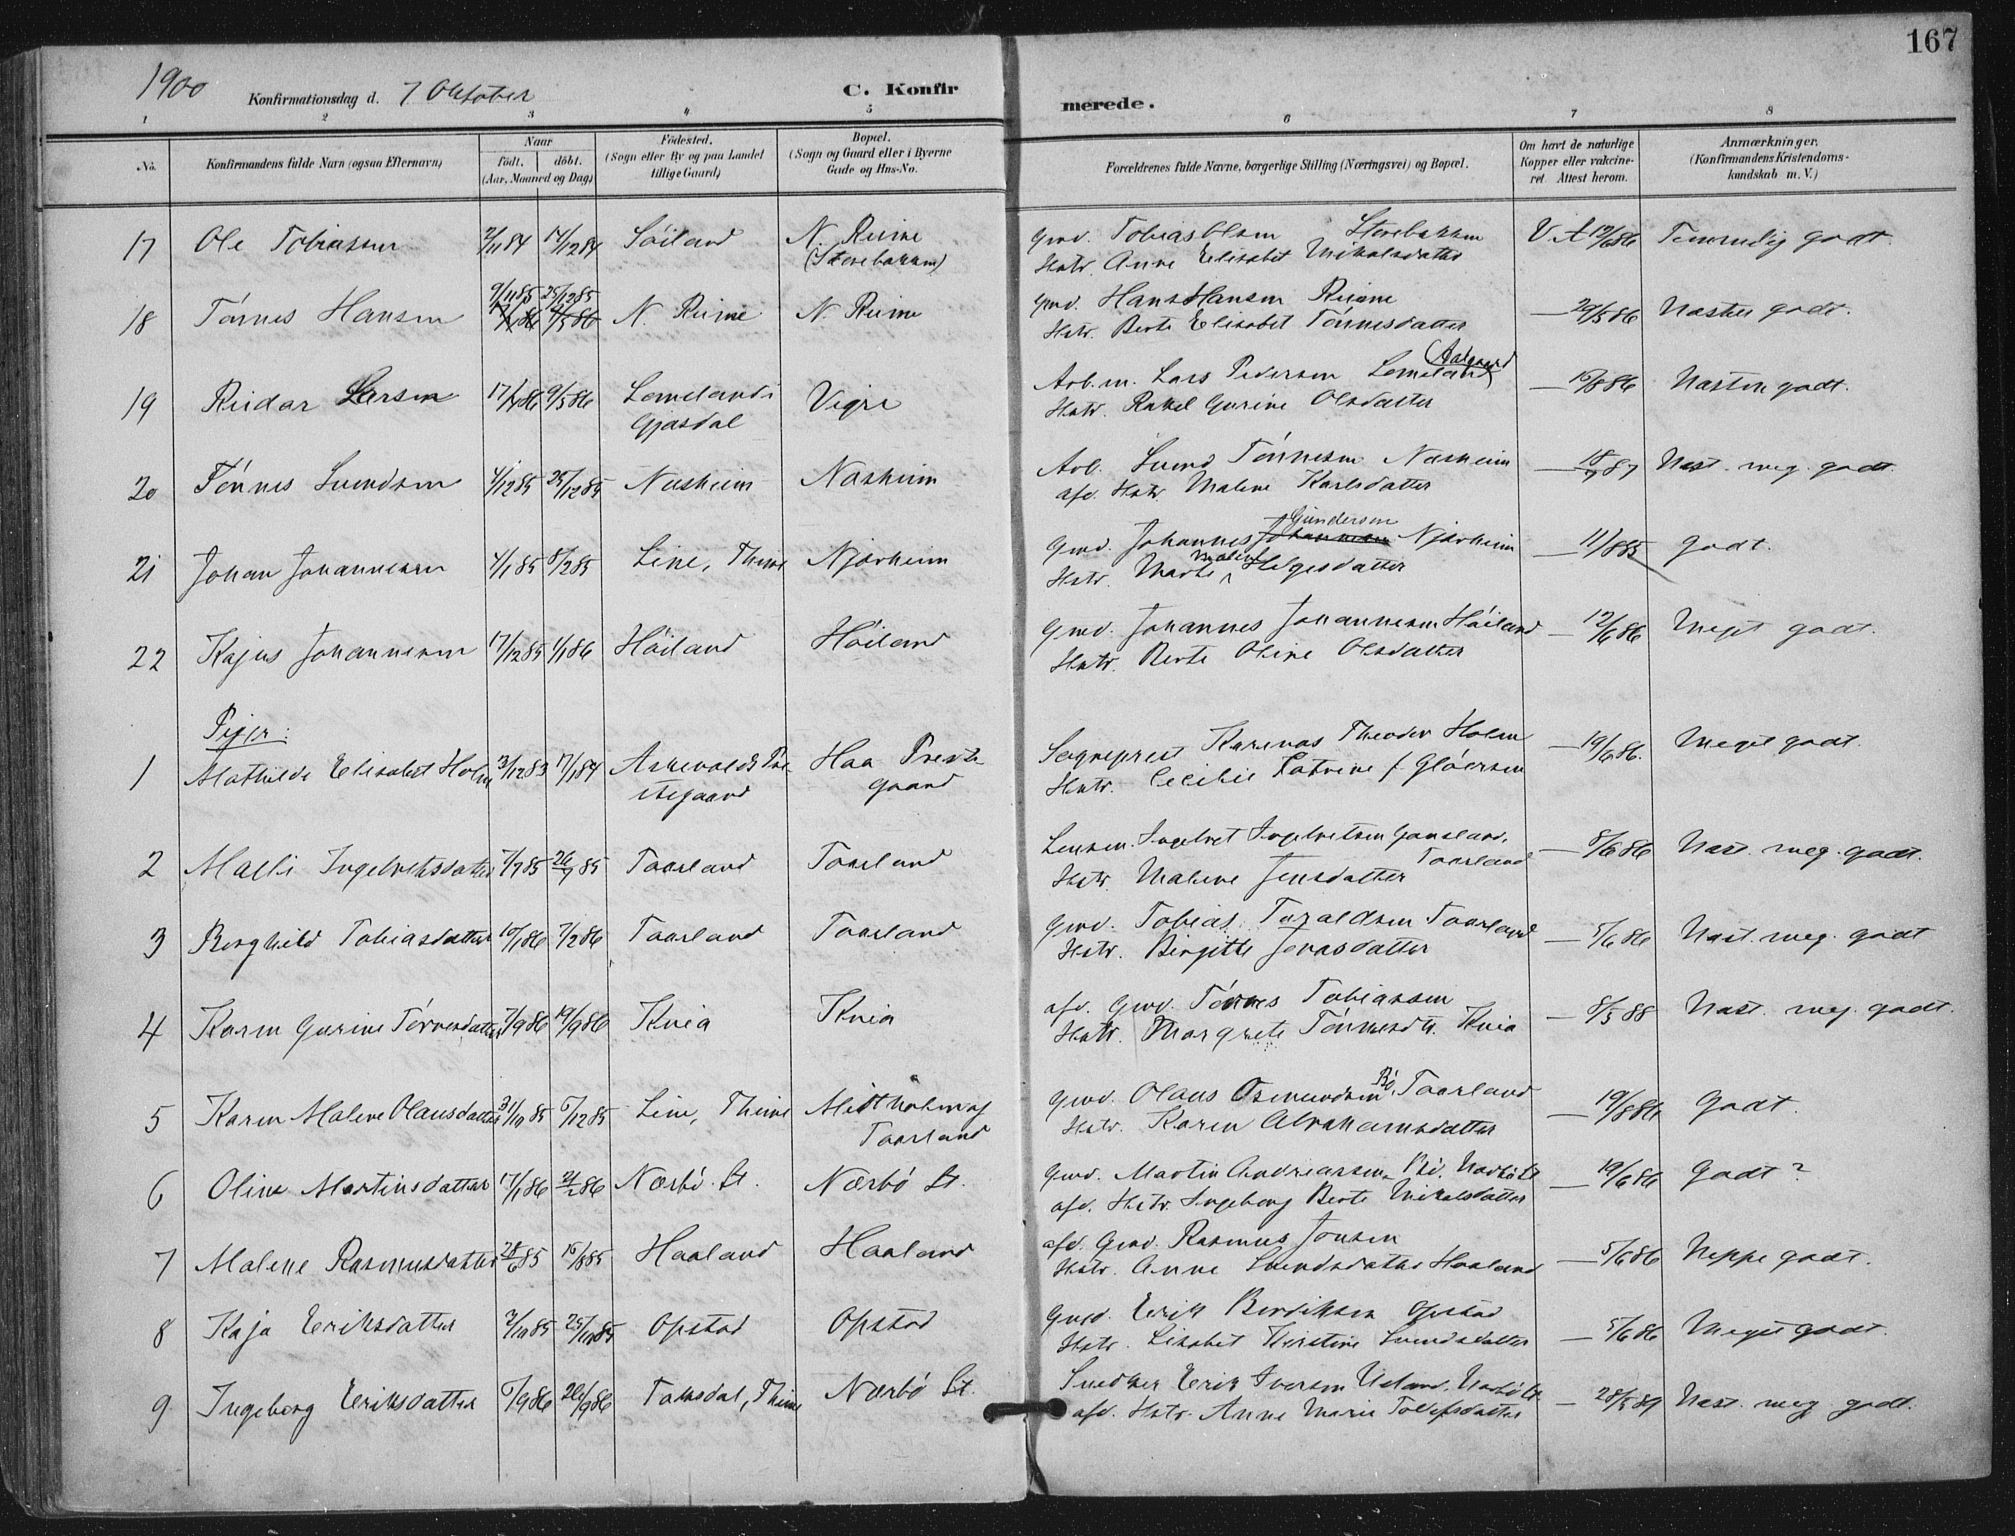 167
1900 Konfirmationsdag d. 7 Oktober C. Konfirmerede.
1 2 3 4 5 6 7 8
No. Konfirmandens fulde Navn (ogsaa Efternavn) Naar født. døbt. (Aar, Maaned og Dag) Födested. (Sogn eller By og paa Landet tillige Gaard) Bopæl. (Sogn og Gaard eller i Byerne Gade og Hus-No. Forældrenes fulde Navne, borgerlige Stilling (Næringsvei) og Bopæl. Om havt de naturlige Kopper eller vakcineret. Attest herom. Anmærkninger. (Konfirmandens Kristendomskundskab m. V.)
17 Ole Tobiassen 2/11 84 14/12 84 Söiland N. Reime Gmd. Tobias Olsen Storebakken V.A 12/6 86 Temmelig godt.
(Storebakken) Hstr. Anne Elisabet Mikalsdatter
9/11 85 25/12 85
18 Tönnes Hansen N. Reime N. Reime Gmd. Hans Hansen Reime — 29/5 86 Næsten godt.
Hstr. Berte Elisabet Tönnesdatter
Aalgaard
19 Reidar Larsen 17/4 86 9/5 86 Lomeland i Vigre Arb.m. Lars Pedersen Lomeland — 15/8 86 Næsten godt.
Gjæsdal Hstr. Rakel Gurine Olsdatter
20 Tönnes Svendsen 4/12 85 25/12 85 Næsheim Næsheim Arb. Svend Tönnesen Næsheim — 18/7 87 Næst. meg. godt.
afd. Hstr. Malene Karlsdatter
Gundersen
21 Johan Johannesen 4/1 85 8/2 85 Line, Thime Njærheim Gmd. Johannes Johannesen Njærheim — 11/8 85 godt.
Hstr. Marte Malene Helgesdatter
22 Kajus Johannesen 17/12 85 1/1 86 Höiland Höiland Gmd. Johannes Johannesen Höiland — 12/6 86 Meget godt.
Hstr. Berte Oline Olsdatter
Piger:
1 Mathilde Elisabet Holm 3/12 83 17/1 84 Askevolds Præ- Haa Preste- Sogneprest Rasmus Theodor Holm — 19/6 86. Meget godt.
stegaard gaard Hstr. Cecilie Catrine f. Glöersen
2 Malli Ingebretsdatter 7/7 85 26/7 85 Taarland Taarland Lensm. Ingebret Ingebretsen Gausland, — 8/6 86 Næst. meg. godt.
Hstr. Malene Jensdatter Taarland
3 Borghild Tobiasdatter 10/1 86 7/2 86 Taarland Taarland Gmd. Tobias Taraldsen Taarland — 5/6 86 Næst. meg. godt
Hstr. Birgitte Jonasdatter
4 Karen Gurine Tönnesdatter 7/9 86 19/9 86 Kvia Kvia afd. Gmd. Tönnes Tobiassen — 8/5 88 Næst. meg. godt.
Hstr. Margrete Tönnesdtr. Kvia
5 Karen Malene Olausdatter 31/10 85 6/12 85 Line, Thime Midtholmen af Gmd. Olaus Osmundsen Bö, Taarland — 19/8 86 Godt.
Taarland Hstr. Karen Abrahamsdatter
6 Oline Martinsdatter 17/1 86 21/2 86 Nærbö St. Nærbö St. Gmd. Martin Andreassen Bö. Nærbö St — 19/6 86 Godt?
afd. Hstr. Ingeborg Berte Mikalsdatter
7 Malene Rasmusdatter 28/6 85 16/8 85 Haaland Haaland afd. Gmd. Rasmus Jonsen — 5/6 86 Neppe godt.
Hstr. Anne Svendsdatter Haaland
8 Kaja Eriksdatter 2/10 85 25/10 85 Opstad Opstad Gmd. Erik Bordiksen Opstad — 5/6 86 Meget godt.
Hstr. Lisabet Kirstine Svendsdatter
9 Ingeborg Eriksdatter 6/9 86 26/9 86 Taksdal, Thime Nærbö St. Snedker Erik Iversen Ueland, Nærbö St. — 28/5 89 Næst. meg. godt.
afd. Hstr. Anne Marie Tollefsdatter